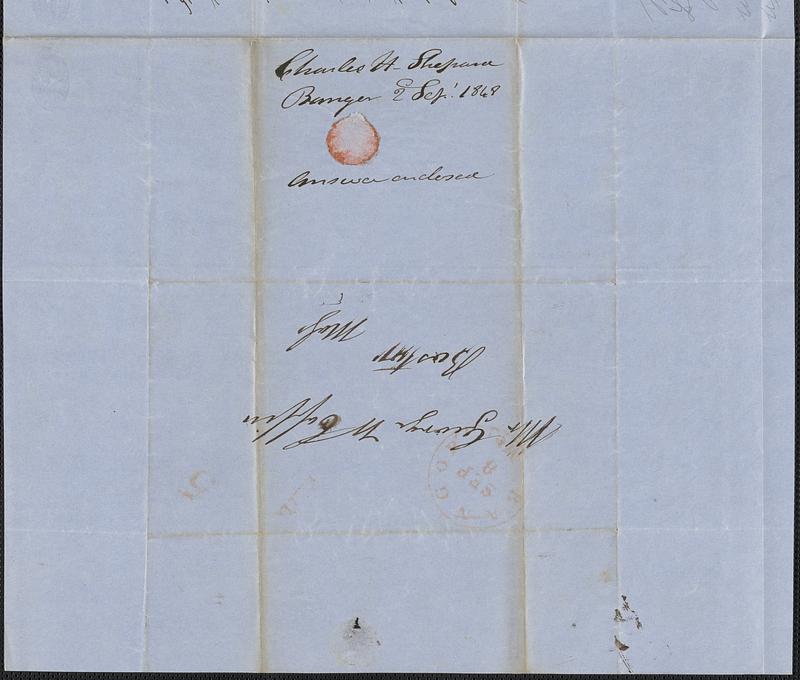 Charles H. Shepard
Bangor 2 Sept. 1848
Answer enclosed
Mr George W Coffin
Boston
Mass
SEP
8